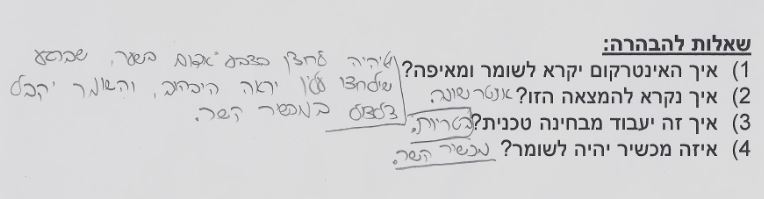 שאלות להבהרה:
1) איך האינטרקום יקרא לשומר ומאיפה? יהיה לחצן בצבע אדום בשער, שברגע
שילחצו עליו יראה היבהוב, והשומר יקבל
צלצול במכשיר קשר.
2) איך נקרא להמצאה הזו?
3) איך זה יעבוד מבחינה טכנית? בטריות.
4) איזה מכשיר יהיה לשומר? מכשיר קשר.